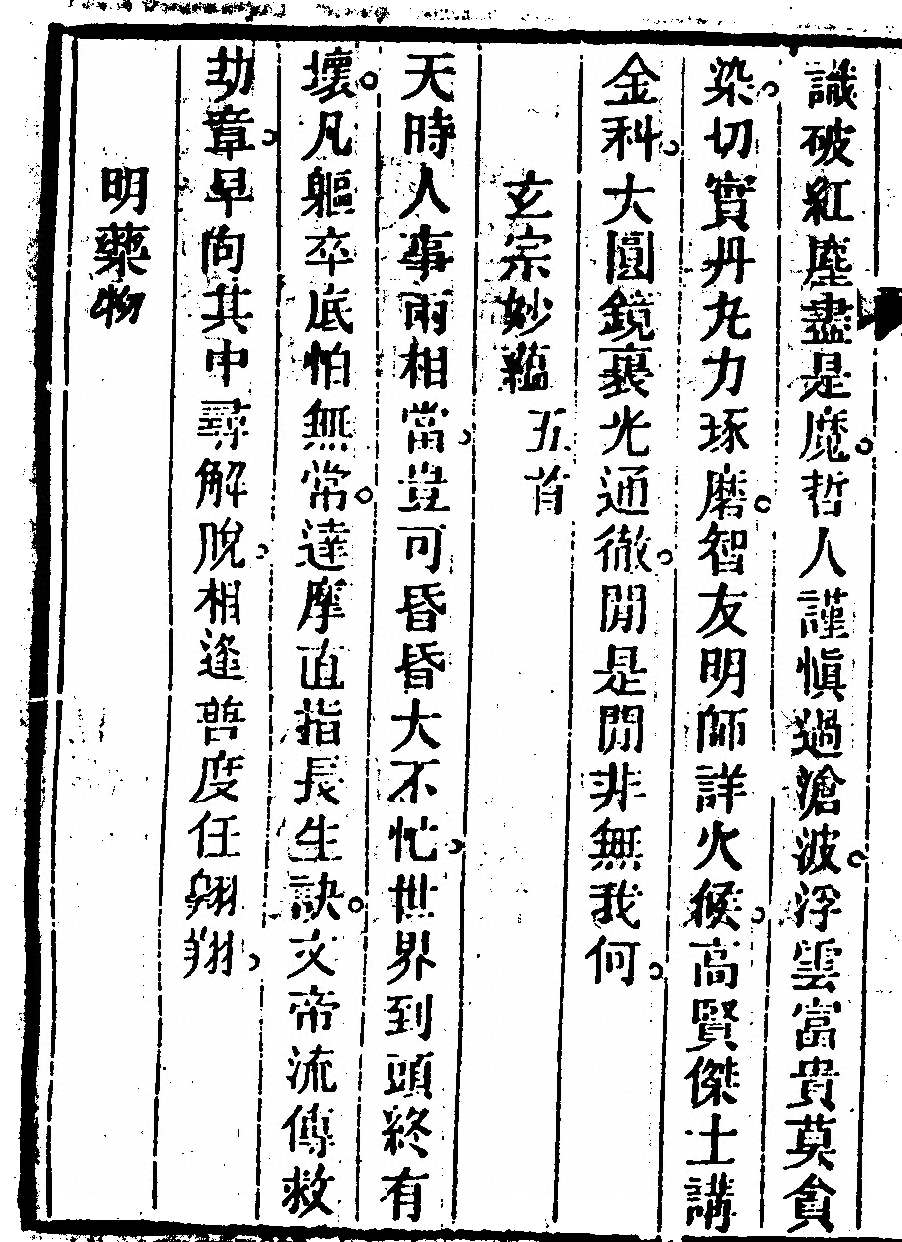 識破紅塵盡是魔。哲人謹愼過滄波。浮雲富貴莫貪
染。切實丹九力琢磨。智友明師詳火候。高賢傑士講
金科。大圓鏡裏光通徹。閒是閒非無我何。
玄宗妙蘊 五首
天時人事兩相當。豈可昏昏大不忙。世界到頭終有
壞。凡軀卒底怕無常。達摩直指長生訣。文帝流傳救
劫章。早向其中尋解脫。相逢喆度任翱翔。
明藥物